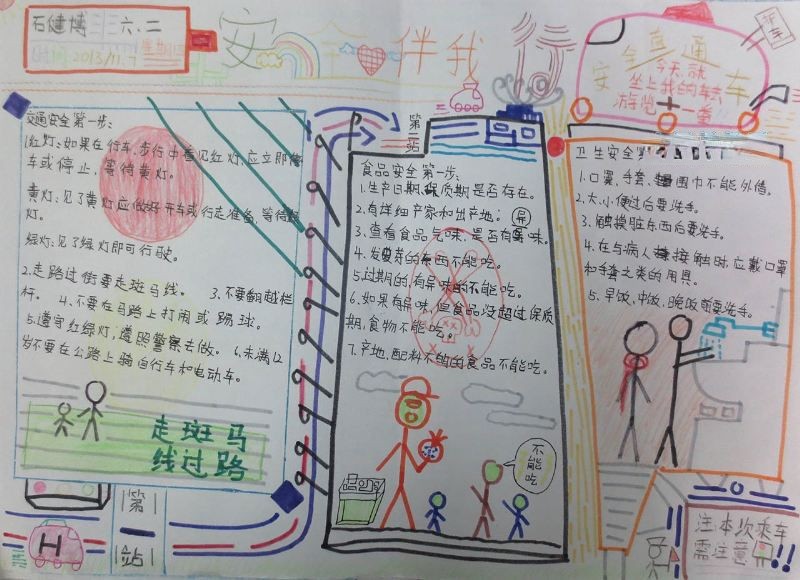 石健博 六.二
时间 2013/11.7 星期
安全伴我行
安全直通车
今天,就
坐上我的车去
游览一重
开车
交通安全第一步:
1.红灯:如果在行车,步行中看见红灯,应立即停
车或停止,等待黄灯。
黄灯:见了黄灯应做好开车或行走准备,等待绿
灯。
绿灯:见了绿灯即可行驶。
2.走路过街要走斑马线。 3.不要翻越栏
杆。 4.不要在马路上打闹或踢球。
5.遵守红绿灯,遵照警察去做。 6.未满12
岁不要在公路上骑自行车和电动车。
走斑马
线过路
第一站
H
第二站
食品安全第一步:
1.生产日期,保质期是否存在。
2.有详细产家和出产地。
3.查看食品气味,是否有异味。
4.发芽的东西不能吃。
5.过期的,有异味的不能吃。
6.如果有异味,但食品没超过保质
期,食物不能吃。
7.产地,配料不明的食品不能吃。
不能吃
卫生安全第
1.口罩,手套,围巾不能外借。
2.大,小便过后要洗手。
3.触摸脏东西后要洗手。
4.在与病人接触时,应戴口罩
和手套之类的用具。
5.早饭,中饭,晚饭前要洗手。
注:本次乘车
需注意!!